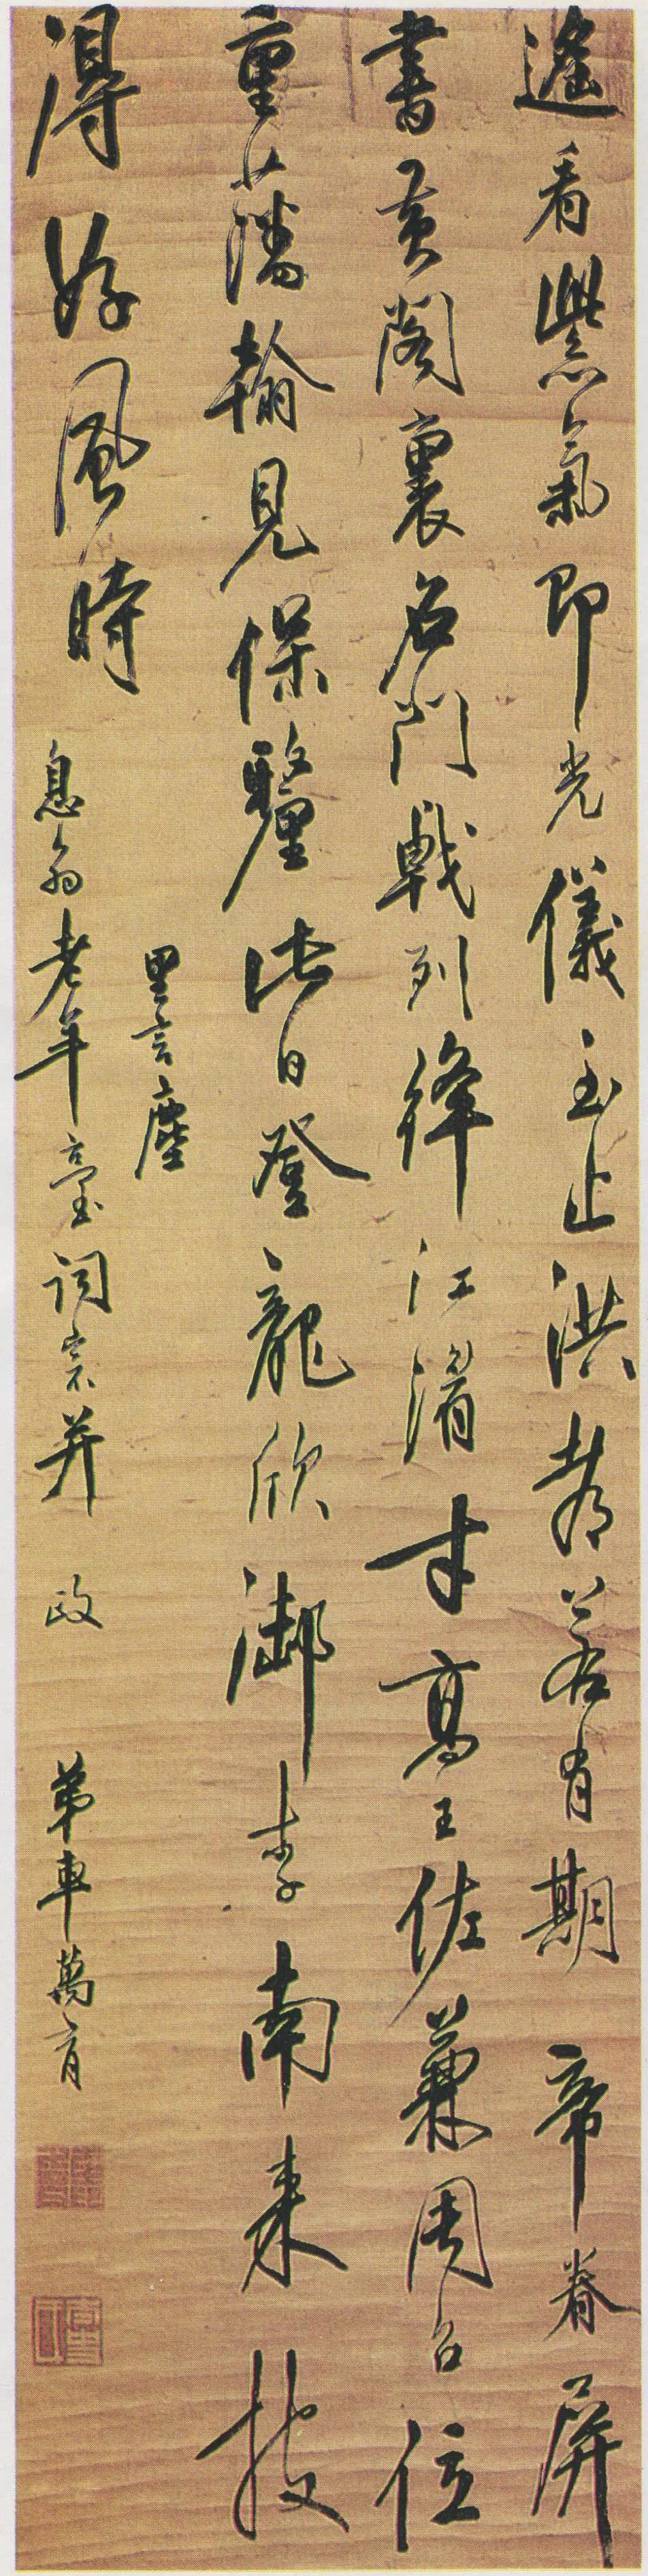 遙看紫氣即光儀玉止洪都若有期帝眷屏
書黃閣裏名門戟列絳江湄才高王佐兼周召位
重藩翰見保釐此日登龍欣御李南來披
得好風時
里言塵
息翁老年臺詞宗并政 弟車萬育